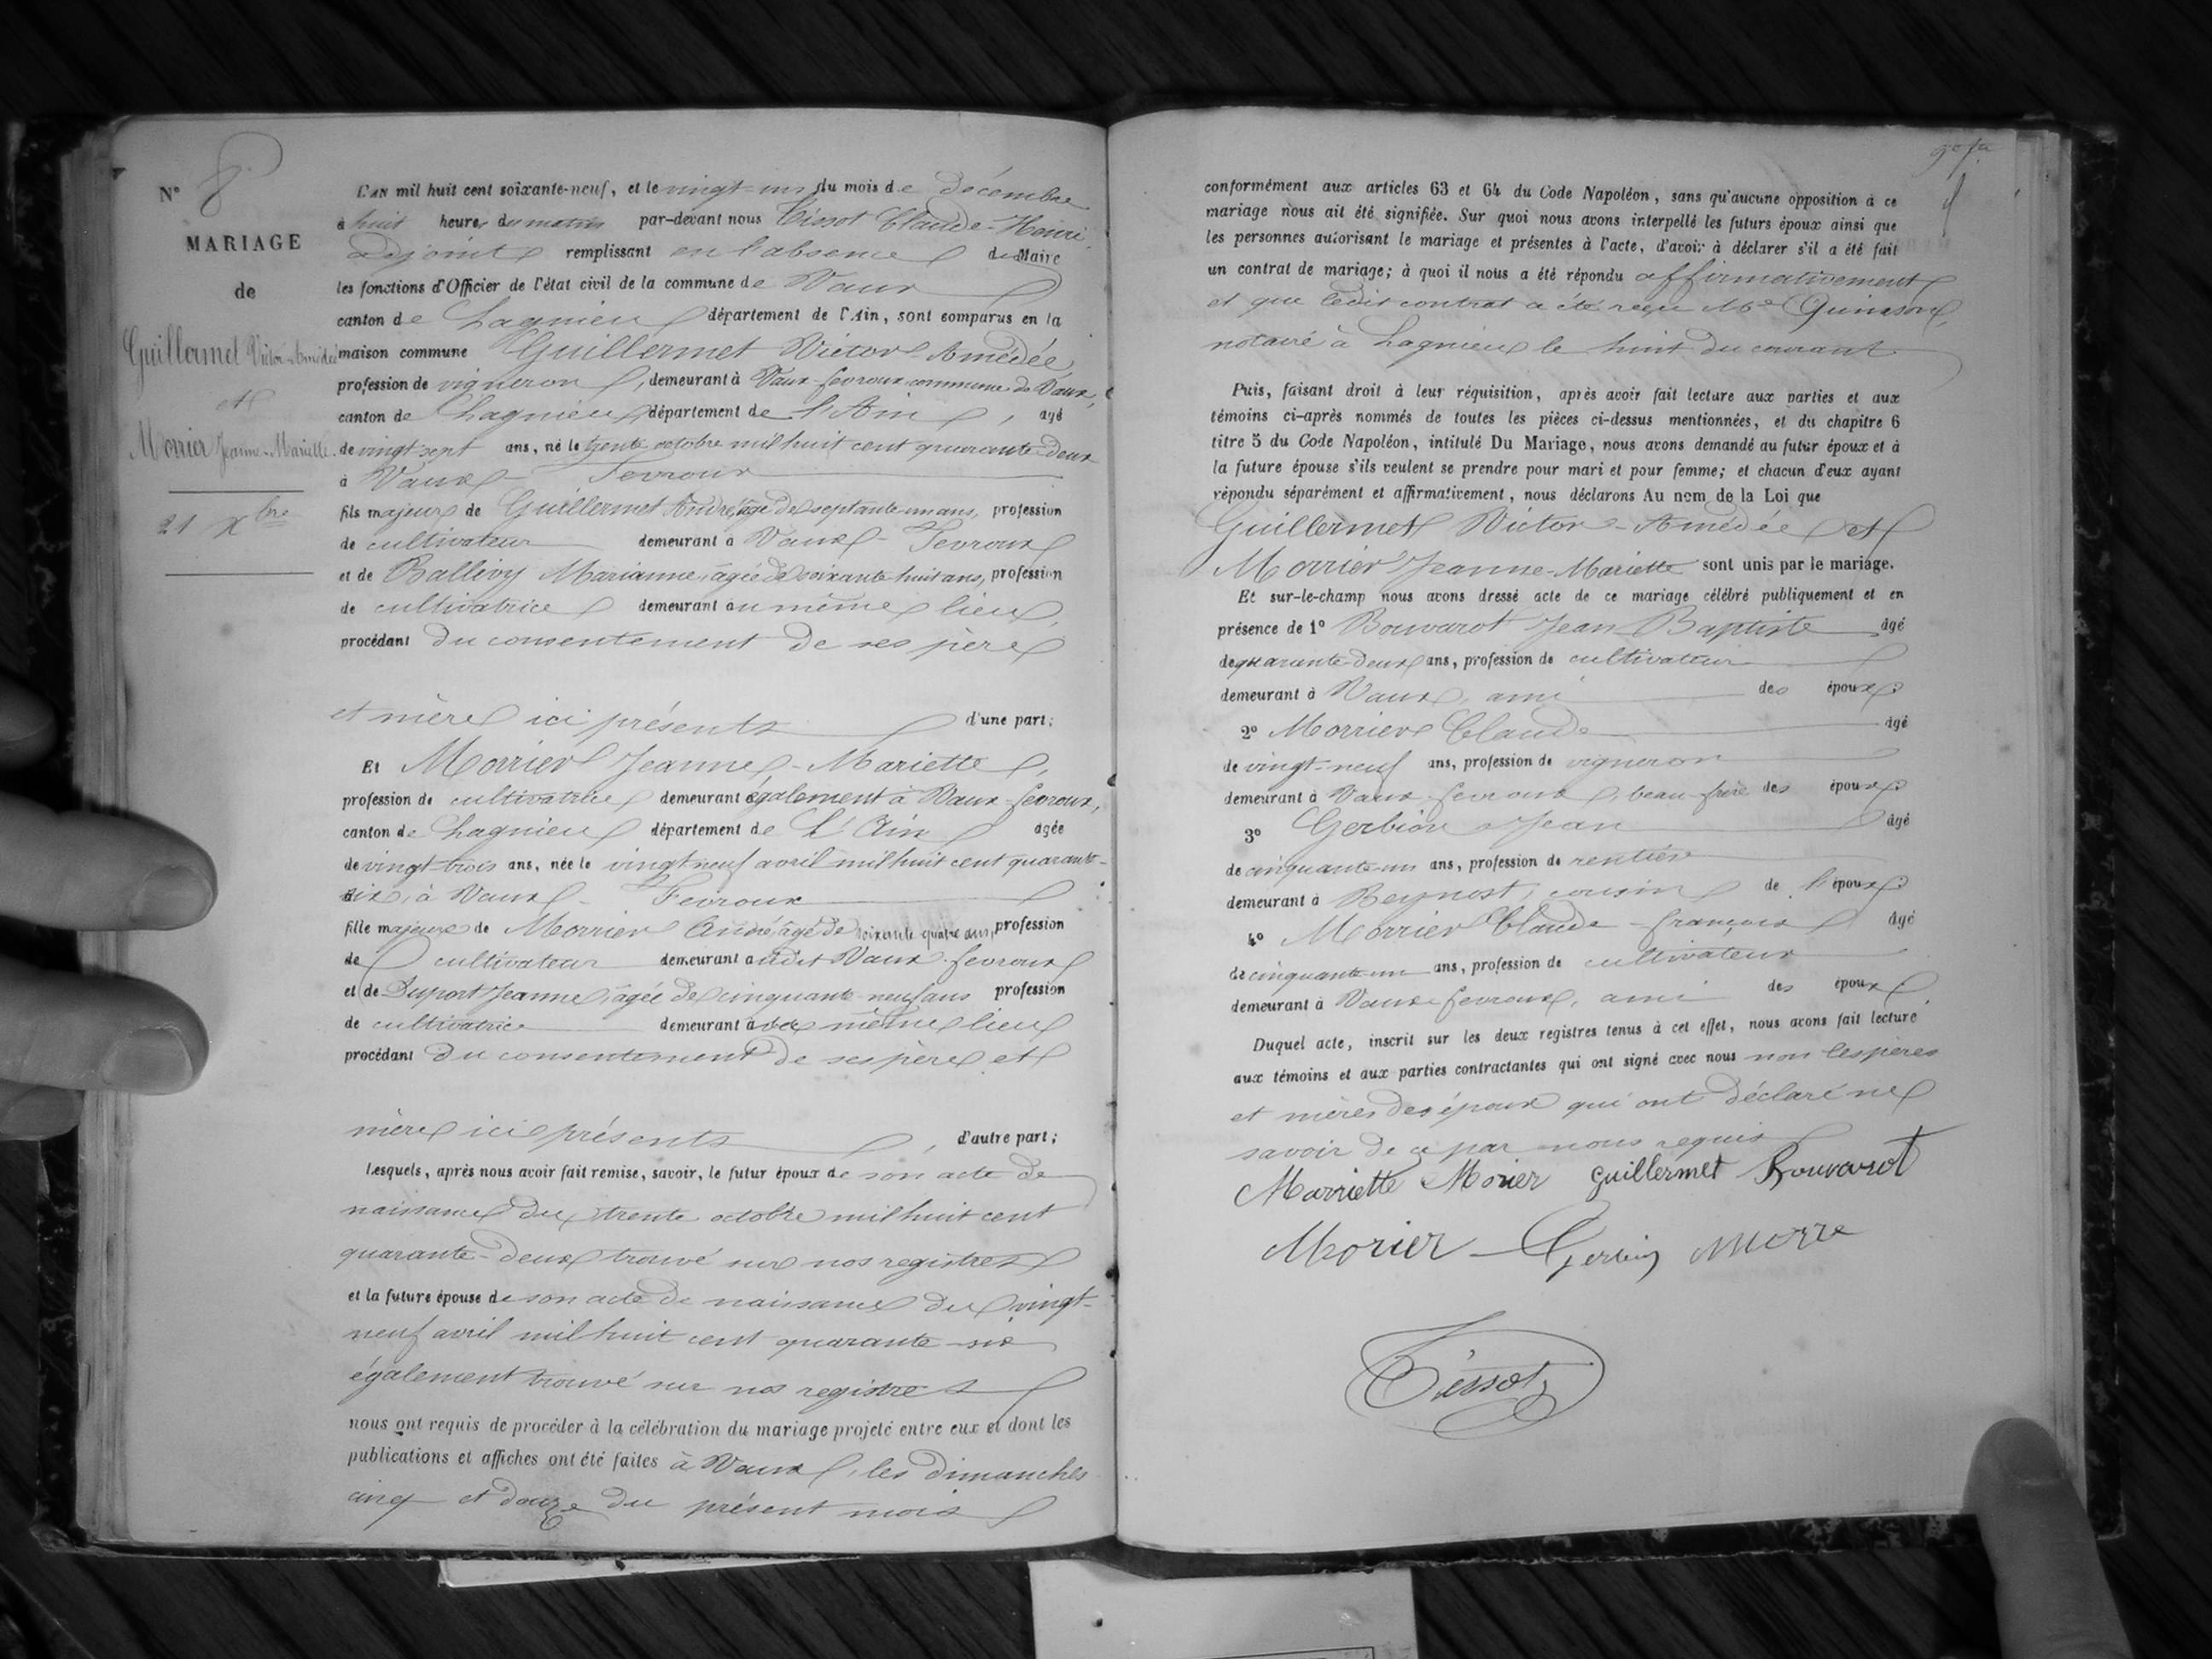 N° 8
MARIAGE
de
Guillermet Victor-Amédée
et
Morrier Jeanne-Mariette.
21 Xbre
L'AN mil huit cent soixante-neuf, et le vingt-un du mois de décembre
à huit heures du matin par-devant nous Tissot Claude-Henri,
adjoint remplissant en l'absence du Maire
les fonctions d'Officier de l'état civil de la commune de Vaux
canton de Lagnieu département de l'Ain, sont comparus en la
maison commune Guillermet Victor-Amédée,
profession de vigneron, demeurant à Vaux-fevroux commune de Vaux,
canton de Lagnieu, département de l'Ain, agé
de vingt sept ans, né le trente octobre mil huit cent quarante-deux
à Vaux-Fevroux
fils majeur de Guillermet André, âgé de septante-un ans, profession
de cultivateur demeurant à Vaux-Fevroux
et de Ballivy Marianne, âgée de soixante-huit ans, profession
de cultivatrice demeurant au même lieu,
procédant du consentement de ses père
et mère ici présents d'une part;
Et Morrier Jeanne-Mariette,
profession de cultivatrice, demeurant également à Vaux-fevroux,
canton de Lagnieu département de L'Ain âgée
de vingt-trois ans, née le vingt neuf avril mil huit cent quarante-
six, à Vaux-Fevroux
fille majeure de Morrier André, âgé de soixante quatre ans, profession
de cultivateur demeurant audit Vaux-fevroux
et de Duport Jeanne, âgée de cinquante-neuf ans profession
de cultivatrice demeurant à même lieu
procédant du consentement de ses père et
mère ici présents, d'autre part;
Lesquels, après nous avoir fait remise, savoir, le futur époux de son acte de
naissance du trente octobre mil huit cent
quarante-deux trouvé sur nos registres
et la future épouse de son acte de naissance du vingt-
neuf avril mil huit cent quarante-six
également trouvé sur nos registres
nous ont requis de procéder à la célébration du mariage projeté entre eux et dont les
publications et affiches ont été faites à Vaux, les dimanches
cinq et douze du présent mois
conformément aux articles 63 et 64 du Code Napoléon, sans qu'aucune opposition à ce
mariage nous ait été signifiée. Sur quoi nous avons interpellé les futurs époux ainsi que
les personnes autorisant le mariage et présentes à l'acte, d'avoir à déclarer s'il a été fait
un contrat de mariage; à quoi il nous a été répondu affirmativement
et que ledit contrat a été reçu Me Quinson,
notaire à Lagnieu le huit du courant
Puis, faisant droit à leur réquisition, après avoir fait lecture aux parties et aux
témoins ci-après nommés de toutes les pièces ci-dessus mentionnées, et du chapitre 6
titre 5 du Code Napoléon, intitulé Du Mariage, nous avons demandé au futur époux et à
la future épouse s'ils veulent se prendre pour mari et pour femme; et chacun d'eux ayant
répondu séparément et affirmativement, nous déclarons Au nom de la Loi que
Guillermet Victor-Amédée et
Morrier Jeanne-Mariette sont unis par le mariage.
Et sur-le-champ nous avons dressé acte de ce mariage célébré publiquement et en
présence de 1° Bouvarot Jean-Baptiste âgé
de quarante-deux ans, profession de cultivateur
demeurant à Vaux, ami des époux;
2° Morrier Claude âgé
de vingt-neuf ans, profession de vigneron
demeurant à Vaux-fevroux, beau-frère des époux;
3° Gerbion Jean âgé
de cinquante-un ans, profession de rentier
demeurant à Beynost, cousin de l'époux;
4° Morrier Claude-françois âgé
de cinquante-un ans, profession de cultivateur
demeurant à Vaux-fevroux, ami des époux.
Duquel acte, inscrit sur les deux registres tenus à cet effet, nous avons fait lecture
aux témoins et aux parties contractantes qui ont signé avec nous non les pères
et mères des époux qui ont déclaré ne
savoir de ce par nous requis
Marriette Morier Guillermet Bouvarot
Morier Gerbion
Tissot